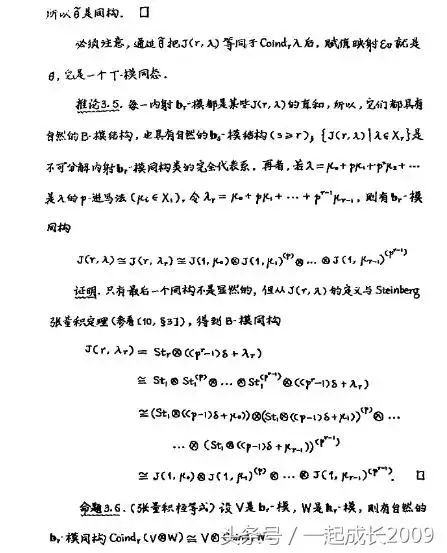 所以θ̃是同构. □
必须注意,通过θ̃把J(r,λ)等同于Coind_r λ后,赋值映射ε₀就是
θ,它是一个T-模同态.
推论3.5. 每一内射b_r-模都是某些J(r,λ)的直和,所以,它们都具有
自然的B-模结构,也具有自然的b_s-模结构(s≥r); {J(r,λ)|λ∈X_r}是
不可分解内射b_r-模同构类的完全代表系. 再者,若λ=μ₀+pμ₁+p²μ₂+⋯
是λ的p-进写法(μᵢ∈X₁),令λ_r=μ₀+pμ₁+⋯+p^{r-1}μ_{r-1},则有b_r-模
同构
J(r,λ)≅J(r,λ_r)≅J(1,μ₀)⊗J(1,μ₁)^{(p)}⊗⋯⊗J(1,μ_{r-1})^{(p^{r-1})}
证明. 只有最后一个同构不是显然的,但从J(r,λ)的定义与Steinberg
张量积定理(参看[10,§3]),得到B-模同构
J(r,λ_r)=St_r⊗((p^r-1)δ+λ_r)
≅St₁⊗St₁^{(p)}⊗⋯⊗St₁^{(p^{r-1})}⊗((p^r-1)δ+λ_r)
≅(St₁⊗((p-1)δ+μ₀))⊗(St₁⊗((p-1)δ+μ₁))^{(p)}⊗⋯
⋯⊗(St₁⊗((p-1)δ+μ_{r-1}))^{(p^{r-1})}
≅J(1,μ₀)⊗J(1,μ₁)^{(p)}⊗⋯⊗J(1,μ_{r-1})^{(p^{r-1})}. □
命题3.6.(张量积恒等式)设V是b_r-模,W是h_r-模,则有自然的
b_r-模同构Coind_r(V⊗W)≅V⊗Coind_r W
头条号/一起成长2009